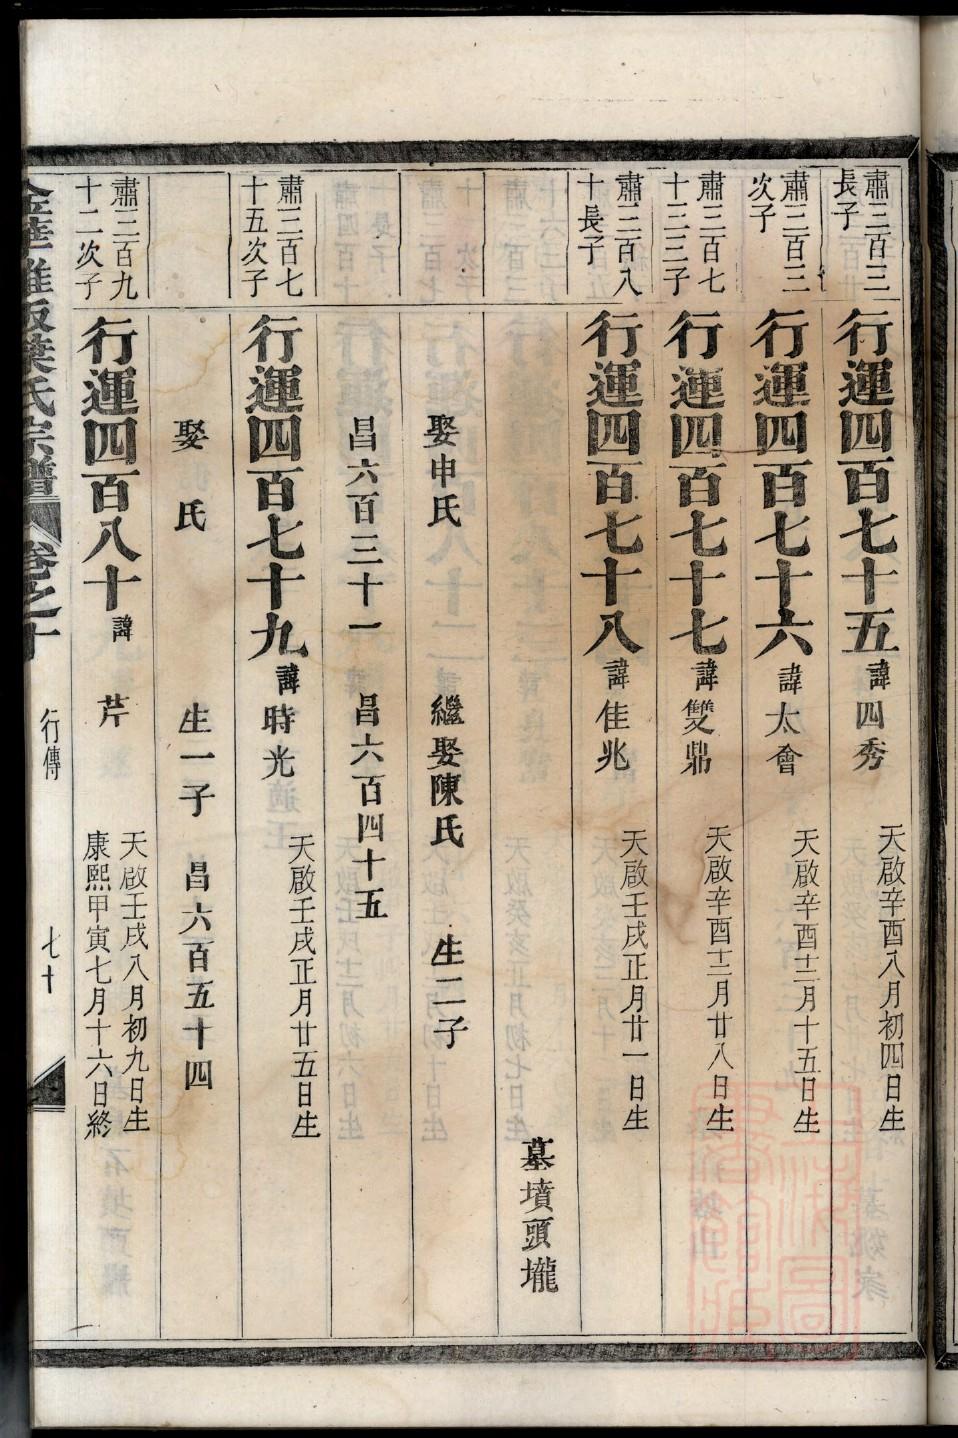 肅三百三
長子
行運四百七十五 諱四秀 天啟辛酉八月初四日生
肅三百三
次子
行運四百七十六 諱太會 天啟辛酉十二月十五日生
肅三百七
十三三子
行運四百七十七 諱雙鼎 天啟辛酉十二月廿八日生
肅三百八
十長子
行運四百七十八 諱佳兆 天啟壬戌正月廿一日生
墓墳頭壠
娶申氏 繼娶陳氏 生二子
昌六百三十一 昌六百四十五
肅三百七
十五次子
行運四百七十九 諱時光 天啟壬戌正月廿五日生
娶 氏 生一子 昌六百五十四
肅三百九
十二次子
行運四百八十 諱芹
天啟壬戌八月初九日生
康熙甲寅七月十六日終
葉氏宗譜 卷之十 行傳 七十